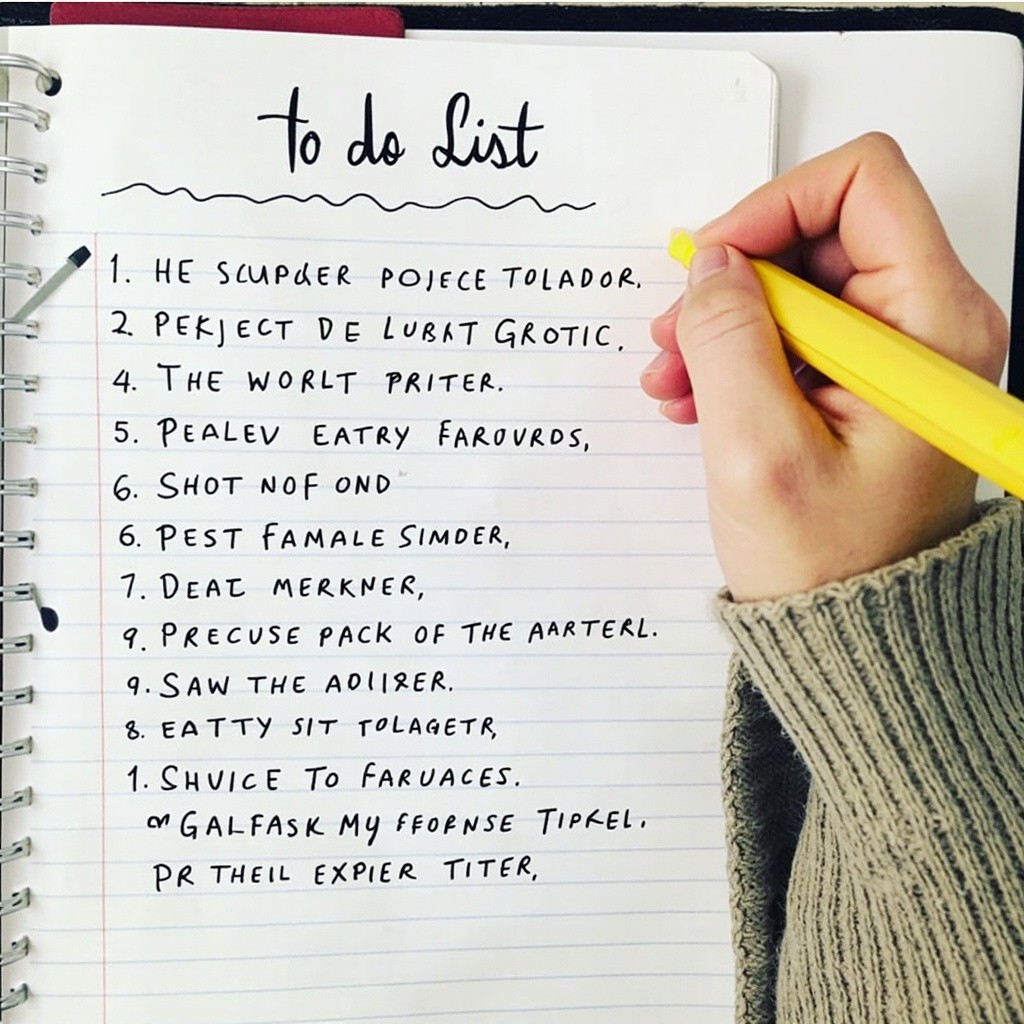 to do List
1. HE SCUPDER POJECE TOLADOR.
2. PEKJECT DE LUBAT GROTIC.
4. THE WORLT PRITER.
5. PEALEV EATRY FAROURDS,
6. SHOT NOF OND
6. PEST FAMALE SIMDER,
7. DEAT MERKNER,
9. PRECUSE PACK OF THE AARTERL.
9. SAW THE
8. EATTY SIT TOLAGETR,
1. SHVICE TO FARUACES.
GALFASK MY FFORNSE TIPKEL.
PR THEIL EXPIER TITER,